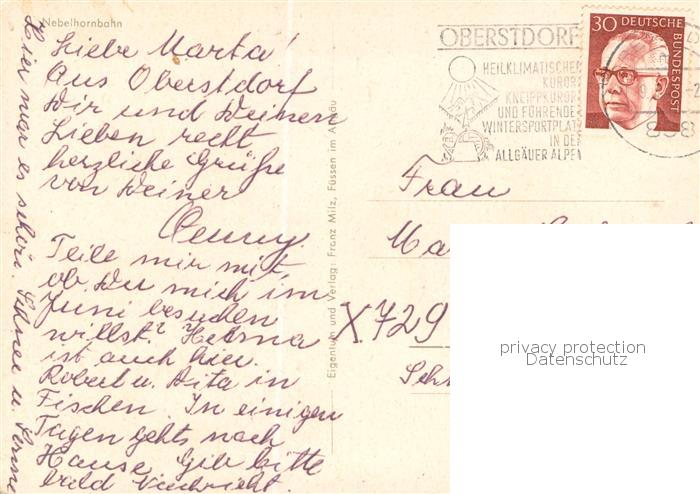 Nebelhornbahn
Liebe Marta!
Aus Oberstdorf
Dir und Deinen
Lieben recht
herzliche Grüße
von Deiner
Teile mir mit,
ob Du mich im
Juni besuchen
willst? Helma
ist auch hier.
Robert u. Rita in
Fischen. In einigen
Tagen gehts nach
Hause. Gib bitte
bald Nachricht.
Hier war es schön. Schnee u. Sonne
Eigentum und Verlag: Franz Milz, Füssen im Allgäu
OBERSTDORF
HEILKLIMATISCHER
KURORT
KNEIPPKURORT
UND FÜHRENDER
WINTERSPORTPLATZ
IN DEN
ALLGÄUER ALPEN
30 DEUTSCHE
BUNDESPOST
898
Frau
X729
privacy protection
Datenschutz